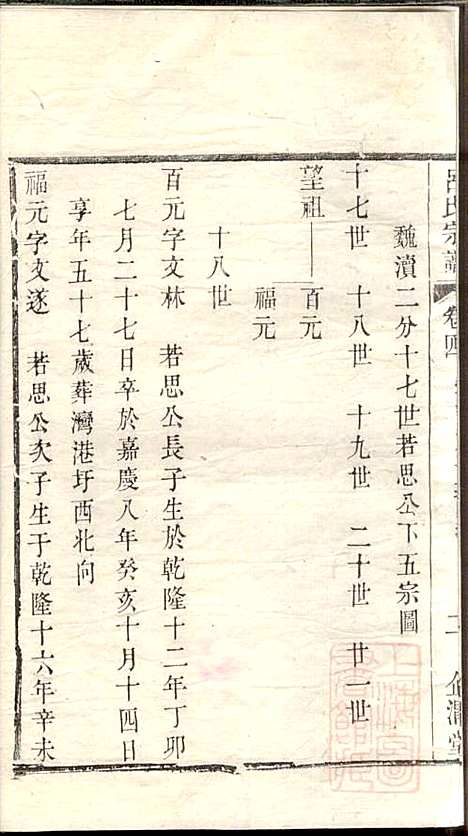 呂氏宗譜 卷四
魏瀆二分十七世若思公下五宗圖
十七世 十八世 十九世 二十世 廿一世
望祖 百元
福元
十八世
百元字文林 若思公長子生於乾隆十二年丁卯
七月二十七日卒於嘉慶八年癸亥十月十四日
享年五十七歲葬灣港圩西北向
福元字文遂 若思公次子生于乾隆十六年辛未